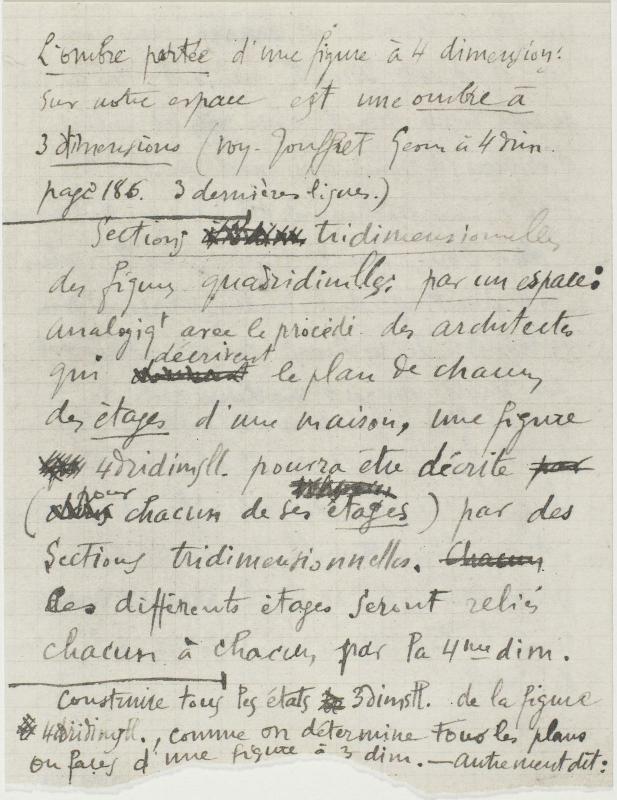 L'ombre portée d'une figure à 4 dimension:
sur notre espace est une ombre à
3 dimensions (voy. Jouffret Geom à 4 dim.
page 186. 3 dernières lignes.)
Sections tridimensionnelles
des figures quadridimlles: par un espace:
analogiqt avec le procédé des architectes
qui décrivent le plan de chacun
des étages d'une maison, une figure
4dridimsll. pourra être décrite par
(pour chacun de ses étages) par des
Sections tridimensionnelles. Chacun
Les différents étages seront reliés
chacun à chacun, par la 4me dim.
Construire tous les états 3dimsll. de la figure
4dridimsll., comme on détermine tous les plans
ou faces d'une figure à 3 dim. — autrement dit: